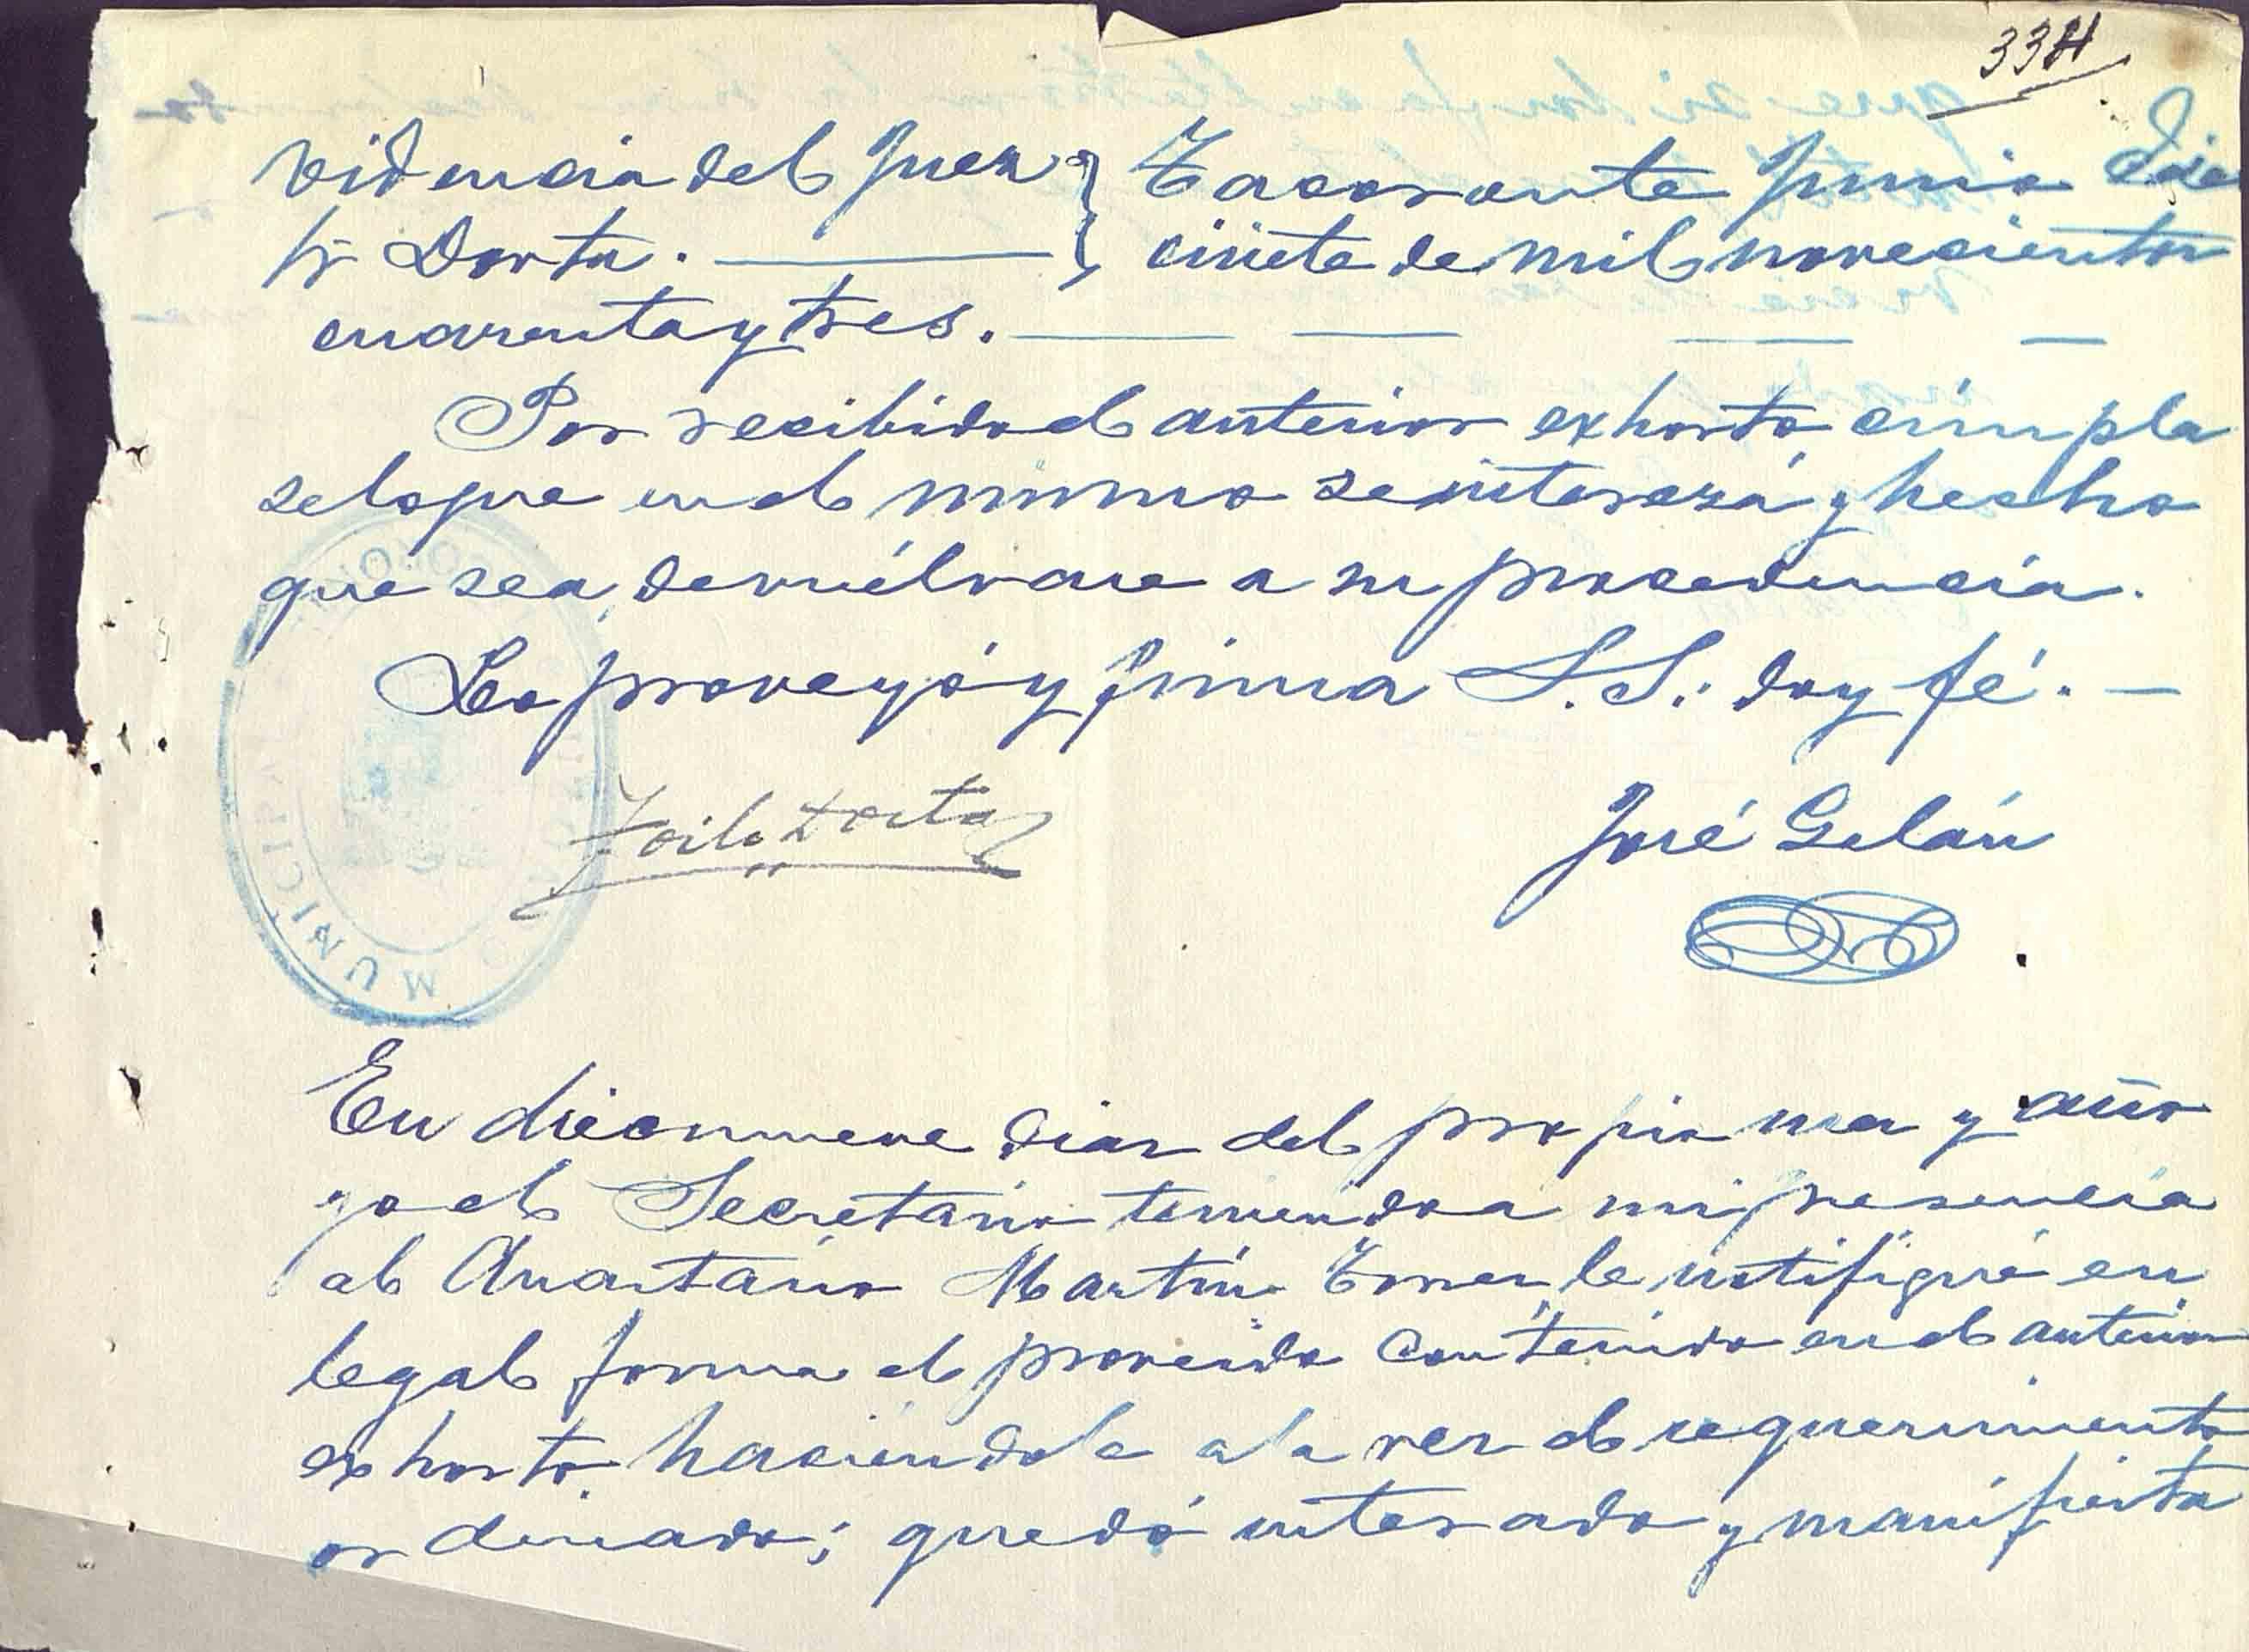 334
videncia del Juez } Tacoronte Junio diez
Sr Dorta. } ciiete de mil novecientos
cuarenta y tres.
Por recibido el anterior exhorto cúmpla
se lo que en el mismo se interesa y hecho
que sea, devuélvase a su procedencia.
Lo proveyó y firma S.S.: doy fé.
Zoilo Dorta
José Gelán
MUNICIPAL
En diecinueve dias del propio mes y año
yo el Secretario teniendo a mi presencia
al Anastasio Martín Torres le notifiqué en
legal forma el proveido contenido en el anterior
exhorto haciéndole a la vez el requerimiento
ordenado; quedó enterado y manifiesta